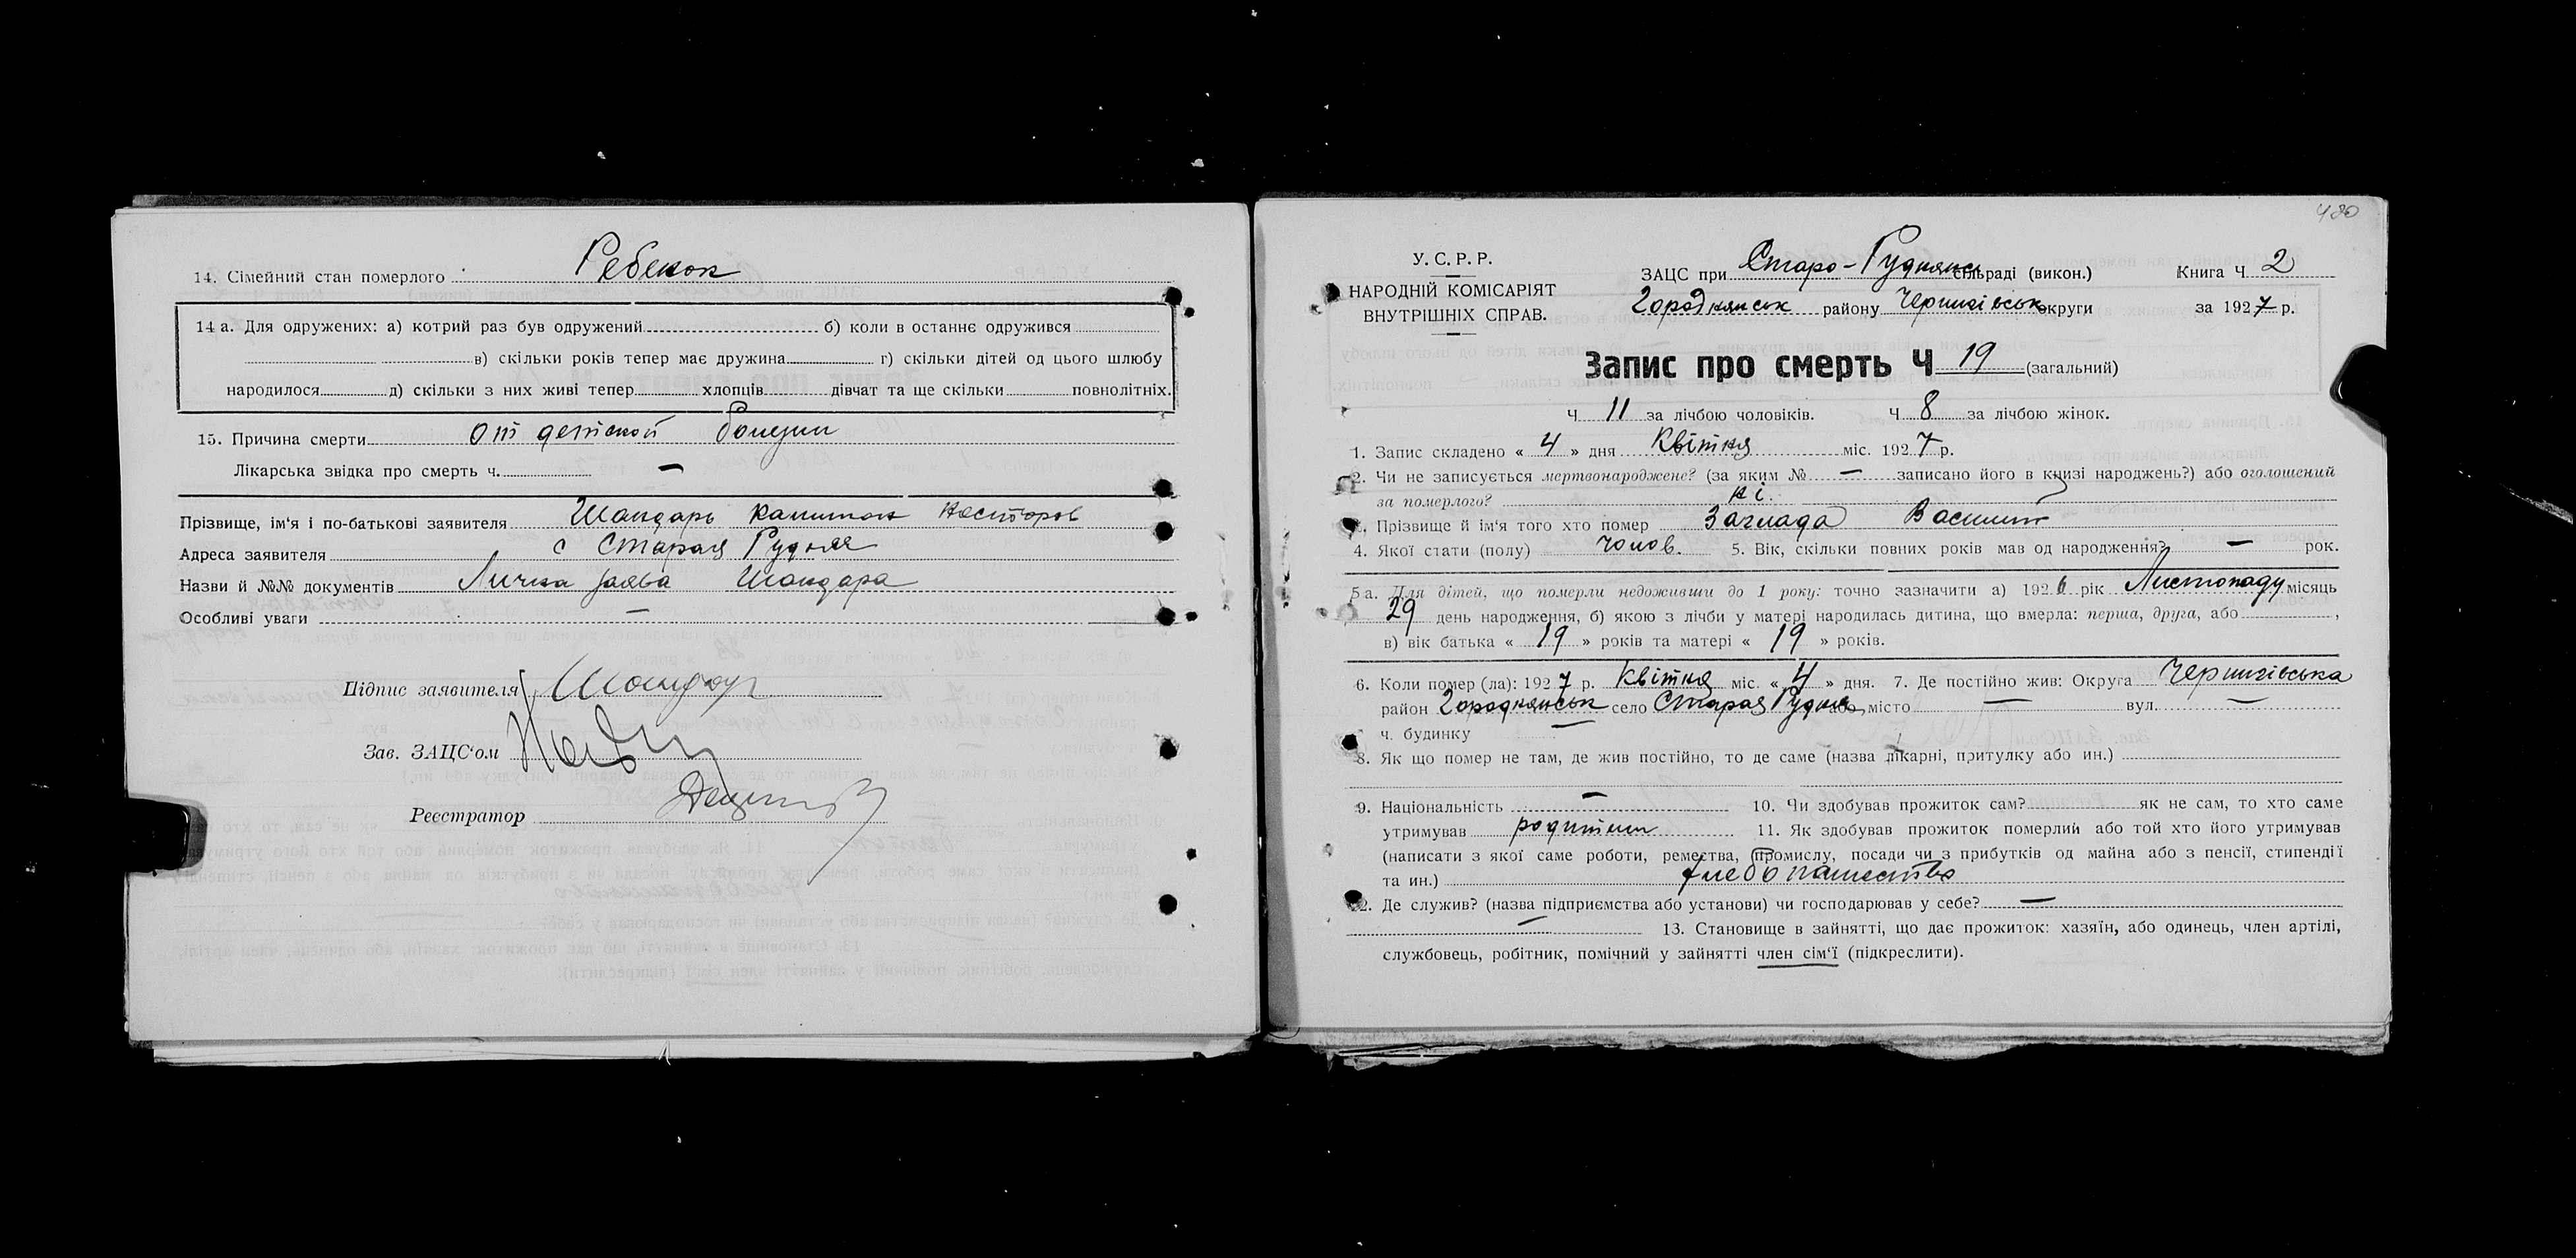 14. Сімейний стан померлого Ребенок
14 а. Для одружених: а) котрий раз був одружений б) коли в останнє одружився
в) скільки років тепер має дружина г) скільки дітей од цього шлюбу
народилося д) скільки з них живі тепер хлопців дівчат та ще скільки повнолітніх.
15. Причина смерти от детской болезни
Лікарська звідка про смерть ч. —
Прізвище, ім'я і по-батькові заявителя Шандарь Капитон Несторов
Адреса заявителя с Старая Рудня
Назви й №№ документів Лична заява Шандара
Особливі уваги —
Підпис заявителя Шандар
Зав. ЗАЦС'ом
Реєстратор
480
У. С. Р. Р.
НАРОДНІЙ КОМІСАРІЯТ
ВНУТРІШНІХ СПРАВ.
ЗАЦС при Старо-Руднянс сільраді (викон.) Книга Ч 2
Городнянськ району Чернигівськ округи за 1927 р.
Запис про смерть Ч 19 (загальний)
Ч 11 за лічбою чоловіків. Ч 8 за лічбою жінок.
1. Запис складено « 4 » дня Квітня міс. 1927 р.
2. Чи не записується мертвонароджене? (за яким № — записано його в книзі народжень?) або оголошений
за померлого? Ні.
3. Прізвище й ім'я того хто помер Заглада Василий
4. Якої стати (полу) чолов. 5. Вік, скільки повних років мав од народження? — рок.
5 а. Для дітей, що померли недоживши до 1 року: точно зазначити а) 1926 рік Листопаду місяць
29 день народження, б) якою з лічби у матері народилась дитина, що вмерла: перша, друга, або ,
в) вік батька « 19 » років та матері « 19 » років.
6. Коли помер (ла): 1927 р. Квітня міс. « 4 » дня. 7. Де постійно жив: Округа Чернигівська
район Городнянськ село Старая Рудня або місто — вул. —
ч. будинку —
8. Як що помер не там, де жив постійно, то де саме (назва лікарні, притулку або ин.)
9. Національність — 10. Чи здобував прожиток сам? як не сам, то хто саме
утримував родители 11. Як здобував прожиток померлий або той хто його утримував
(написати з якої саме роботи, ремества, промислу, посади чи з прибутків од майна або з пенсії, стипендії
та ин.) хлебопашество
12. Де служив? (назва підприємства або установи) чи господарював у себе? —
— 13. Становище в зайнятті, що дає прожиток: хазяїн, або одинець, член артілі,
службовець, робітник, помічний у зайнятті член сім'ї (підкреслити).